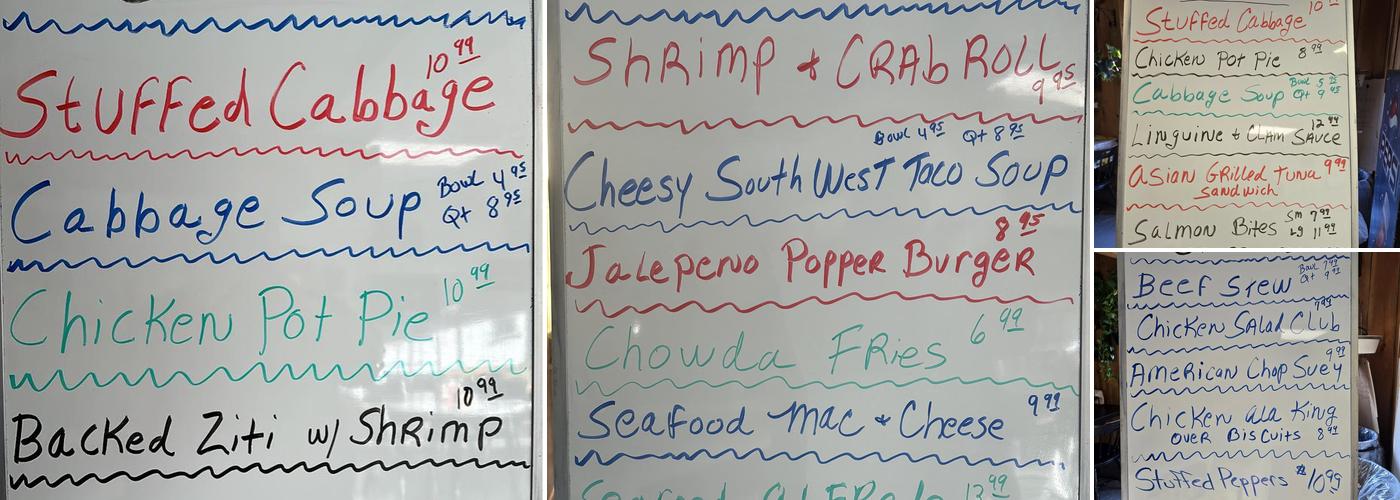 Stuffed Cabbage 10 99
Cabbage Soup Bowl 4 95
Qt 8 95
Chicken Pot Pie 10 99
Backed Ziti w/ Shrimp 10 99
Shrimp & Crab Roll 9 95
Bowl 4 95 Qt 8 95
Cheesy South West Taco Soup
Jalepeno Popper Burger 8 95
Chowda Fries 6 99
Seafood Mac & Cheese 9 99
Seafood Alfredo 13 99
Stuffed Cabbage 10
Chicken Pot Pie 8 99
Cabbage Soup Bowl 5
Qt 9
Linguine & Clam Sauce 12 99
Asian Grilled Tuna 9 99
Sandwich
Salmon Bites Sm 7 99
Lg 11 99
Beef Stew Bowl
Qt
Chicken Salad Club 7 95
American Chop Suey 9 99
Chicken ala King
over Biscuits 8 99
Stuffed Peppers $10 95